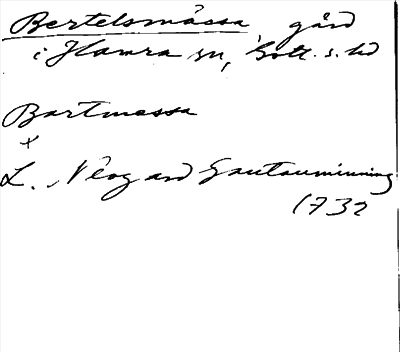 Bertelsmässa gård
i Hamra sn, Gotl. s. hd
Bartmessa
+
L. Neogard Gautauminning
1732